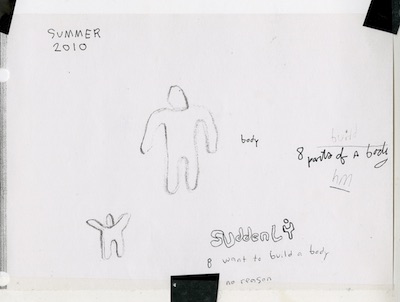 SUMMER
2010
body
build
8 parts of a body
hm
SUddenLY
I want to build a body
no reason